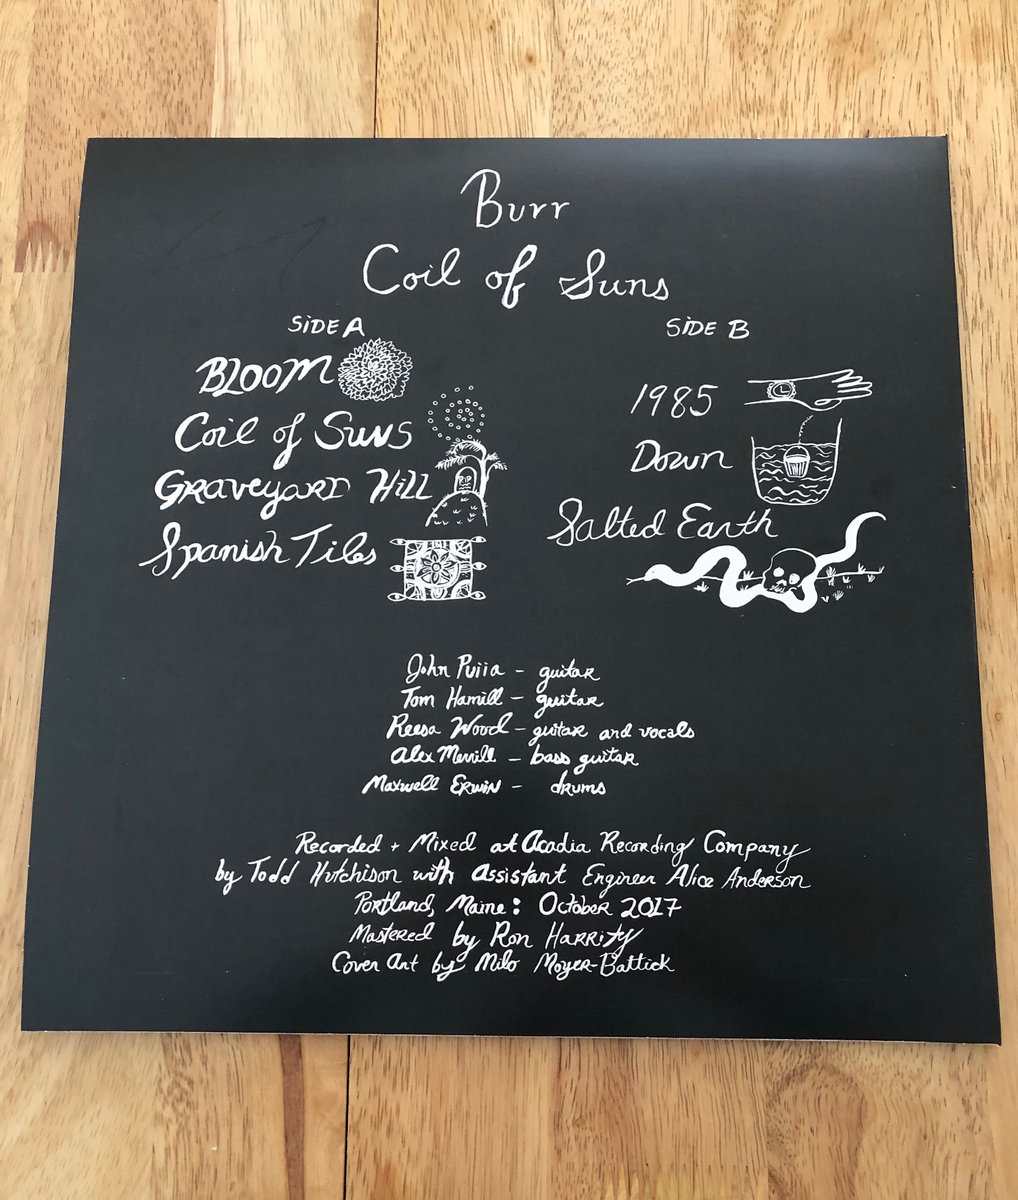 Burr
Coil of Suns
SiDE A
BLOOM
Coil of Suns
Graveyard Hill
Spanish Tiles
SiDE B
1985
Down
Salted Earth
John Puiia - guitar
Tom Hamill - guitar
Reesa Wood - guitar and vocals
Alex Merrill - bass guitar
Maxwell Erwin - drums
Recorded + Mixed at Acadia Recording Company
by Todd Hutchison with Assistant Engineer Alice Anderson
Portland, Maine: October 2017
Mastered by Ron Harrity
Cover Art by Milo Moyer-Battick